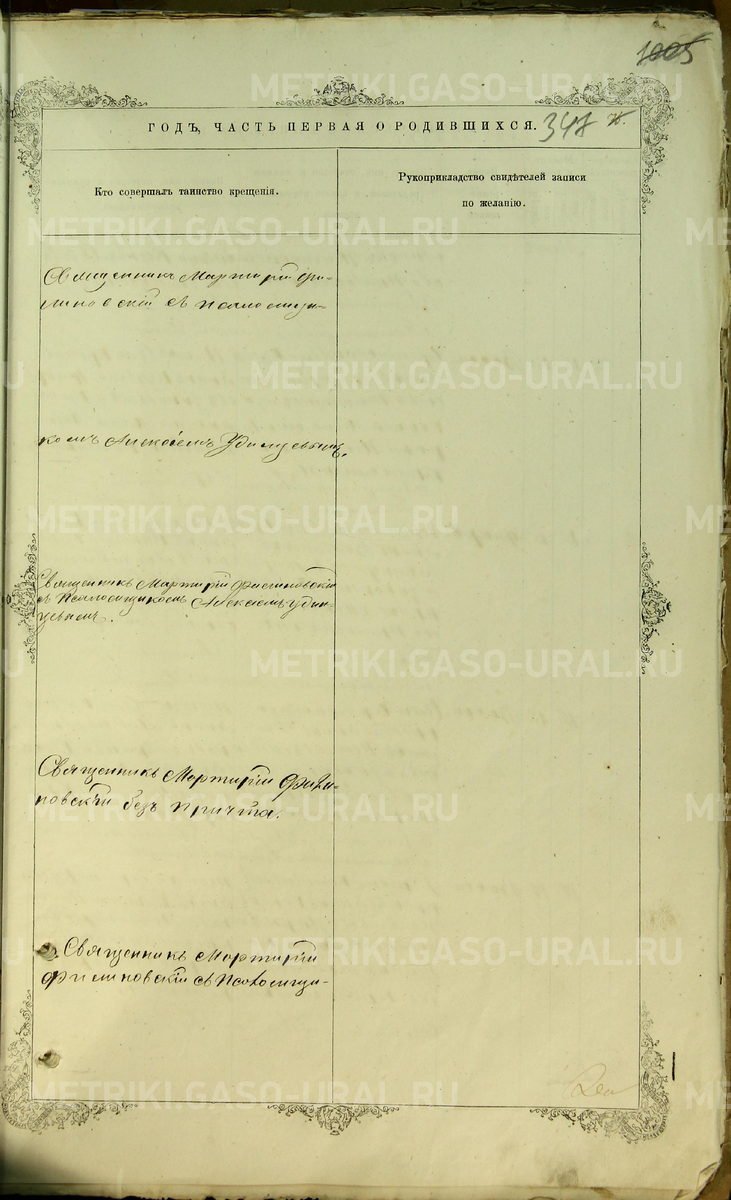 1005
ГОДЪ, ЧАСТЬ ПЕРВАЯ О РОДИВШИХСЯ.
347
Кто совершалъ таинство крещенія.
Рукоприкладство свидѣтелей записи
по желанію.
Священникъ Мартирій Фи-
линовскій съ псаломщи-
комъ Алексѣемъ
Священникъ Мартирій Филиновскій
съ Псаломщикомъ Алексѣемъ
Священникъ Мартирій Фили-
новскій безъ причта.
Священникъ Мартирій
Филиновскій съ Псаломщи-
METRIKI.GASO-URAL.RU